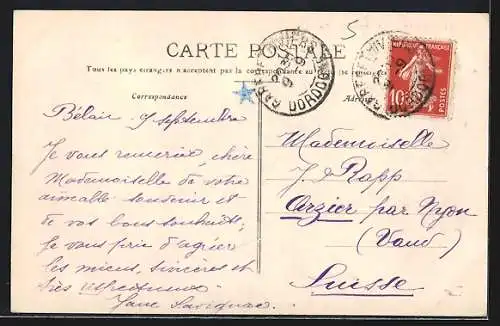 5
CARTE POSTALE
Tous les pays étrangers n'acceptent pas la correspondance au recto
Correspondance
DORDOGNE
DORDOGNE
REPUBLIQUE FRANÇAISE
10
POSTES
Bélair 9 septembre
Je vous remercie, chère
Mademoiselle de votre
aimable souvenir et
de vos bons souhaits,
je vous prie d'agréer
les miens, sincères et
très affectueux.
Jane Savignac
Mademoiselle
J. Rapp
Arzier par Nyon
(Vaud)
Suisse